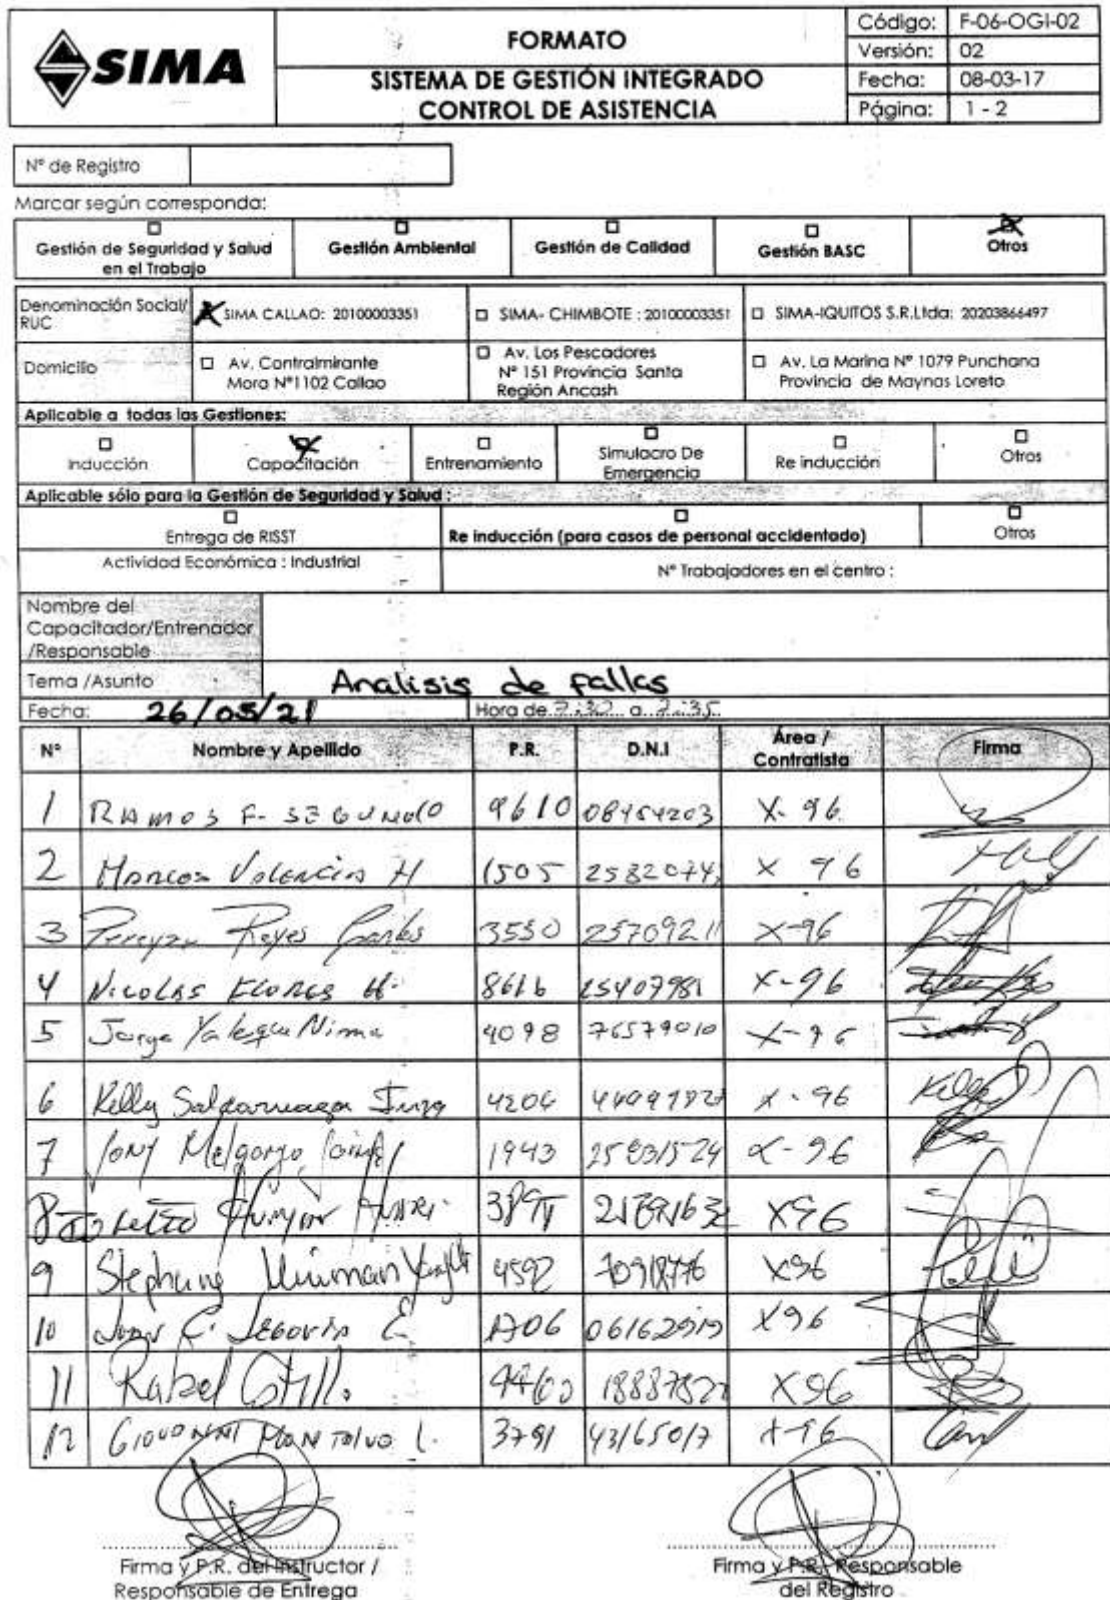 SIMA
FORMATO
SISTEMA DE GESTIÓN INTEGRADO
CONTROL DE ASISTENCIA
Código: F-06-OGI-02
Versión: 02
Fecha: 08-03-17
Página: 1 - 2
Nº de Registro
Marcar según corresponda:
Gestión de Seguridad y Salud en el Trabajo
Gestión Ambiental
Gestión de Calidad
Gestión BASC
Otros
Denominación Social/ RUC
SIMA CALLAO: 20100003351
SIMA- CHIMBOTE : 20100003351
SIMA-IQUITOS S.R.Ltda: 20203866497
Domicilio
Av. Contralmirante
Mora Nº1102 Callao
Av. Los Pescadores
Nº 151 Provincia Santa
Región Ancash
Av. La Marina Nº 1079 Punchana
Provincia de Maynas Loreto
Aplicable a todas las Gestiones:
Inducción
Capacitación
Entrenamiento
Simulacro De Emergencia
Re inducción
Otros
Aplicable sólo para la Gestión de Seguridad y Salud :
Entrega de RISST
Re inducción (para casos de personal accidentado)
Otros
Actividad Económica : Industrial
Nº Trabajadores en el centro :
Nombre del
Capacitador/Entrenador
/Responsable
Tema /Asunto Analisis de fallas
Fecha: 26/05/21 Hora de 7:32 a 7:35
Nº Nombre y Apellido P.R. D.N.I Área / Contratista Firma
1 RAMOS F. SEGUNDO 9610 08454203 X-96
2 Marcos Valencia H 1505 X 96
3 Pereyra Reyes Carlos 3550 25709211 X-96
4 Nicolas Flores H. 8616 25407981 X-96
5 Jorge Yaleque Nima 4098 76579010 X-96
6 Kelly 4206 X-96
7 Melgarejo 1943 X-96
8 X96
9 Stephany Huaman 4592 70918776 X96
10 Juan C. Segovia E. 1706 06162919 X96
11 X96
12 Giovanni Montalvo L. 3791 43165017 X-96
Firma y P.R. del Instructor /
Responsable de Entrega
Firma y P.R. Responsable
del Registro